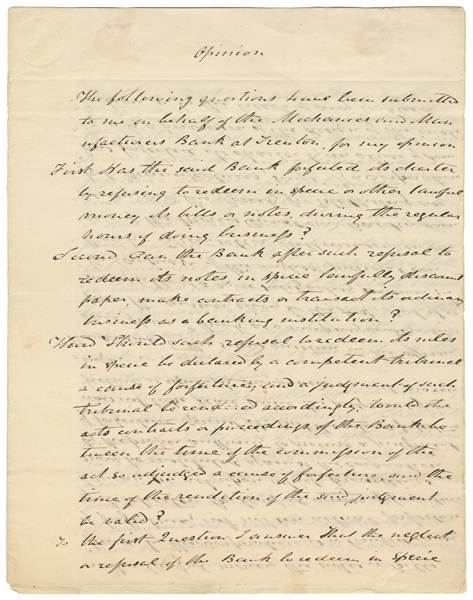 Opinion
The following questions have been submitted
to me in behalf of the Mechanics and Man
ufacturers Bank at Trenton, for my opinion
First Has the said Bank forfeited its charter
by refusing to redeem in specie or other lawful
money its bills or notes, during the regular
hours of doing business?
Second Can the Bank after such refusal to
redeem its notes, in specie lawfully discount
paper, make contracts or transact its ordinary
business as a banking institution?
Third Should such refusal to redeem its notes
in specie be declared by a competent tribunal
a cause of forfeiture, and a judgment of such
tribunal be rendered accordingly, would the
acts contracts or proceedings of the Bank be-
tween the time of the commission of the
act so adjudged a cause of forfeiture, and the
time of the rendition of the said judgment
be valid?
To the first Question I answer that the neglect
or refusal of the Bank to redeem in specie